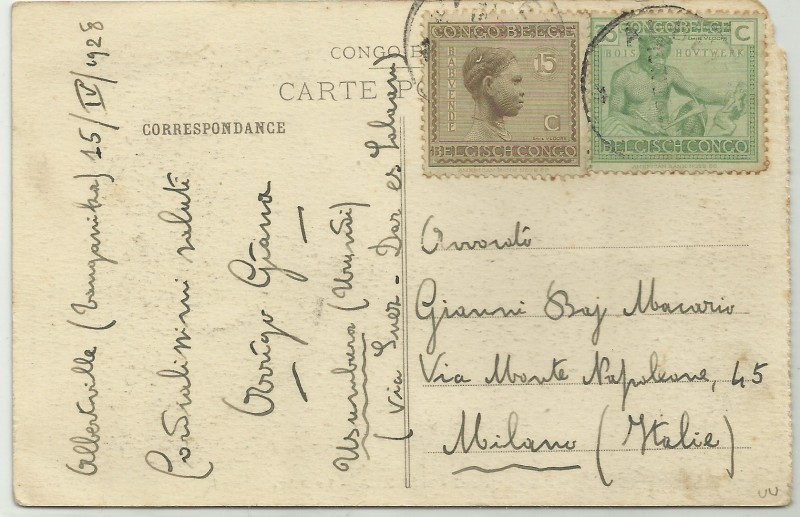 CONGO
CARTE
CORRESPONDANCE
Albertville (Tanganika) 15/IV/1928
Cordialissimi saluti
Arrigo Giana
Usumbura (Urundi)
(Via Suez - Dar es Salaam)
CONGO BELGE
BABUENDE
15
C
BELGISCH CONGO
CONGO BELGE
C
BOIS HOUTWERK
BELGISCH CONGO
Avvocato
Gianni Baj Macario
Via Monte Napoleone, 45
Milano (Italie)